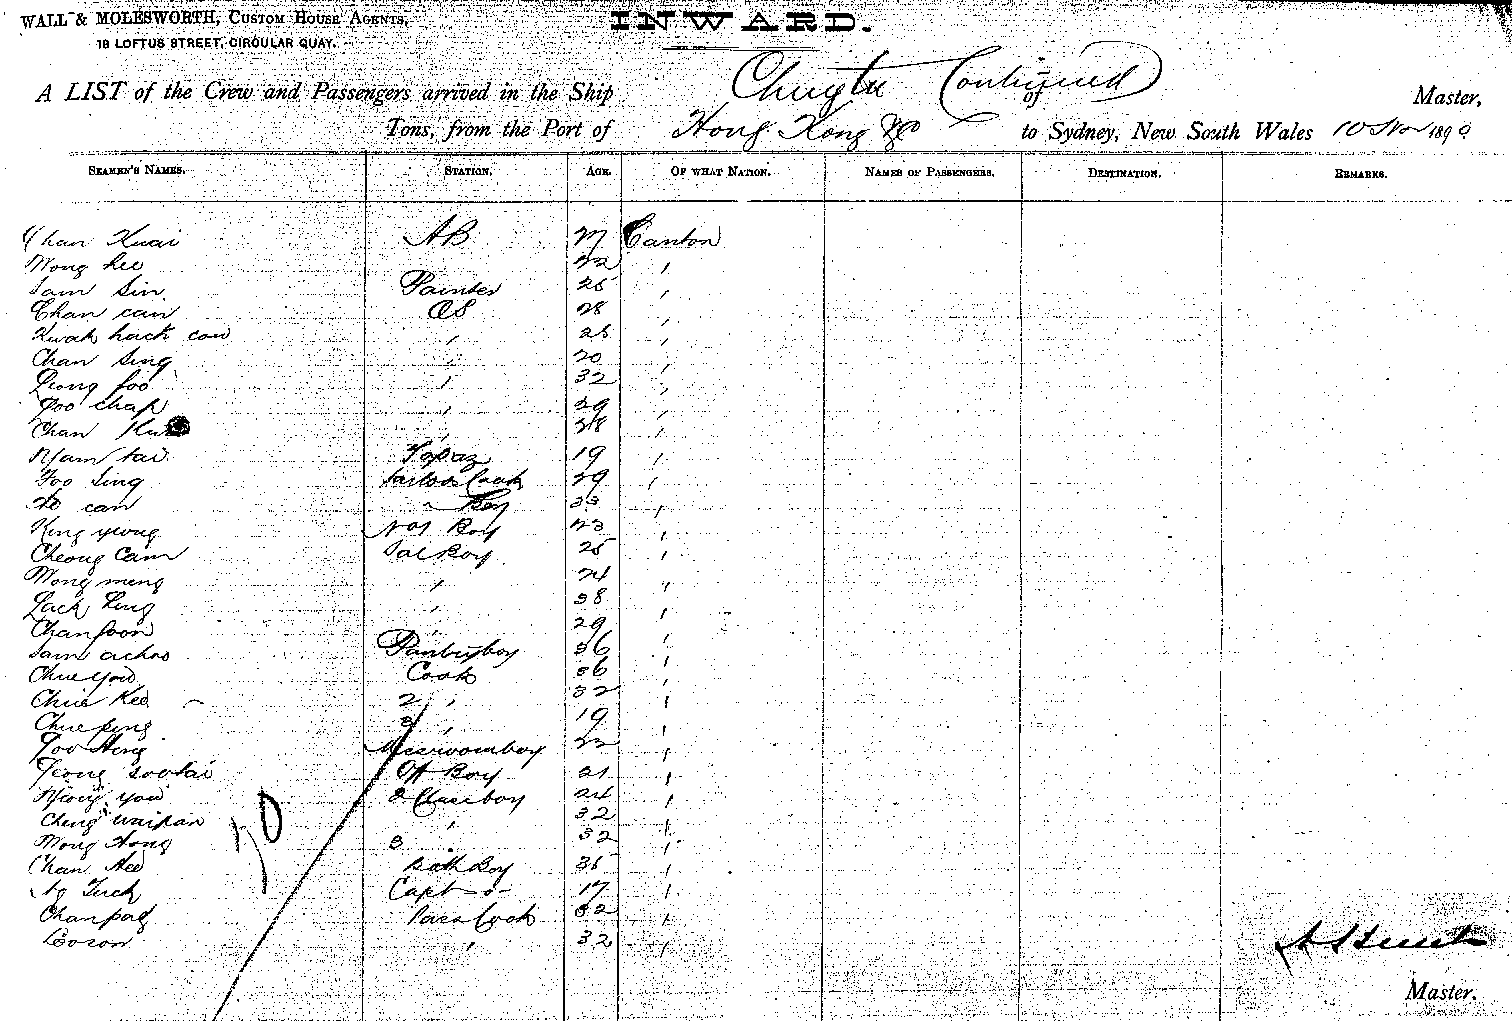 WALL & MOLESWORTH, CUSTOM HOUSE AGENTS,
18 LOFTUS STREET, CIRCULAR QUAY.
INWARD.
A LIST of the Crew and Passengers arrived in the Ship Chingtu Continued of Master,
Tons, from the Port of Hong Kong &c to Sydney, New South Wales 10 Nov 189
SEAMEN'S NAMES. STATION. AGE. OF WHAT NATION. NAMES OF PASSENGERS. DESTINATION. REMARKS.
Chan Kwai AB 27 Canton
Wong Lee 22 "
Sam Sin Painter 25 "
Chan can OS 28 "
Kwak hack cow " "
Chan Sing " 20 "
Leong foo " 32 "
Foo chap " 29 "
Chan "
Nam tai Topaz 19 "
Foo Sing Sailors Cook 29 "
can " Boy 23 "
King yung No1 Boy 23 "
Cheong Cam Sal Boy 25 "
Wong meng " 24 "
Lack Ling " 38 "
Chan foon " 29 "
Sam achoo Pantryboy 36 "
Chue you Cook 36 "
Chue Kee 2 " 32 "
Chue ping 3 " 19 "
Foo Hing Messroomboy 22 "
Leong sootai Off Boy 21 "
you 2 Class boy 24 "
Cheng waipan " 32 "
Wong Hong 3 " 32 "
Chan Hee Bath Boy 35 "
Ng Tuck Capt -o- 17 "
Chan pat Pass Cook 32 "
" 32 "
Master.